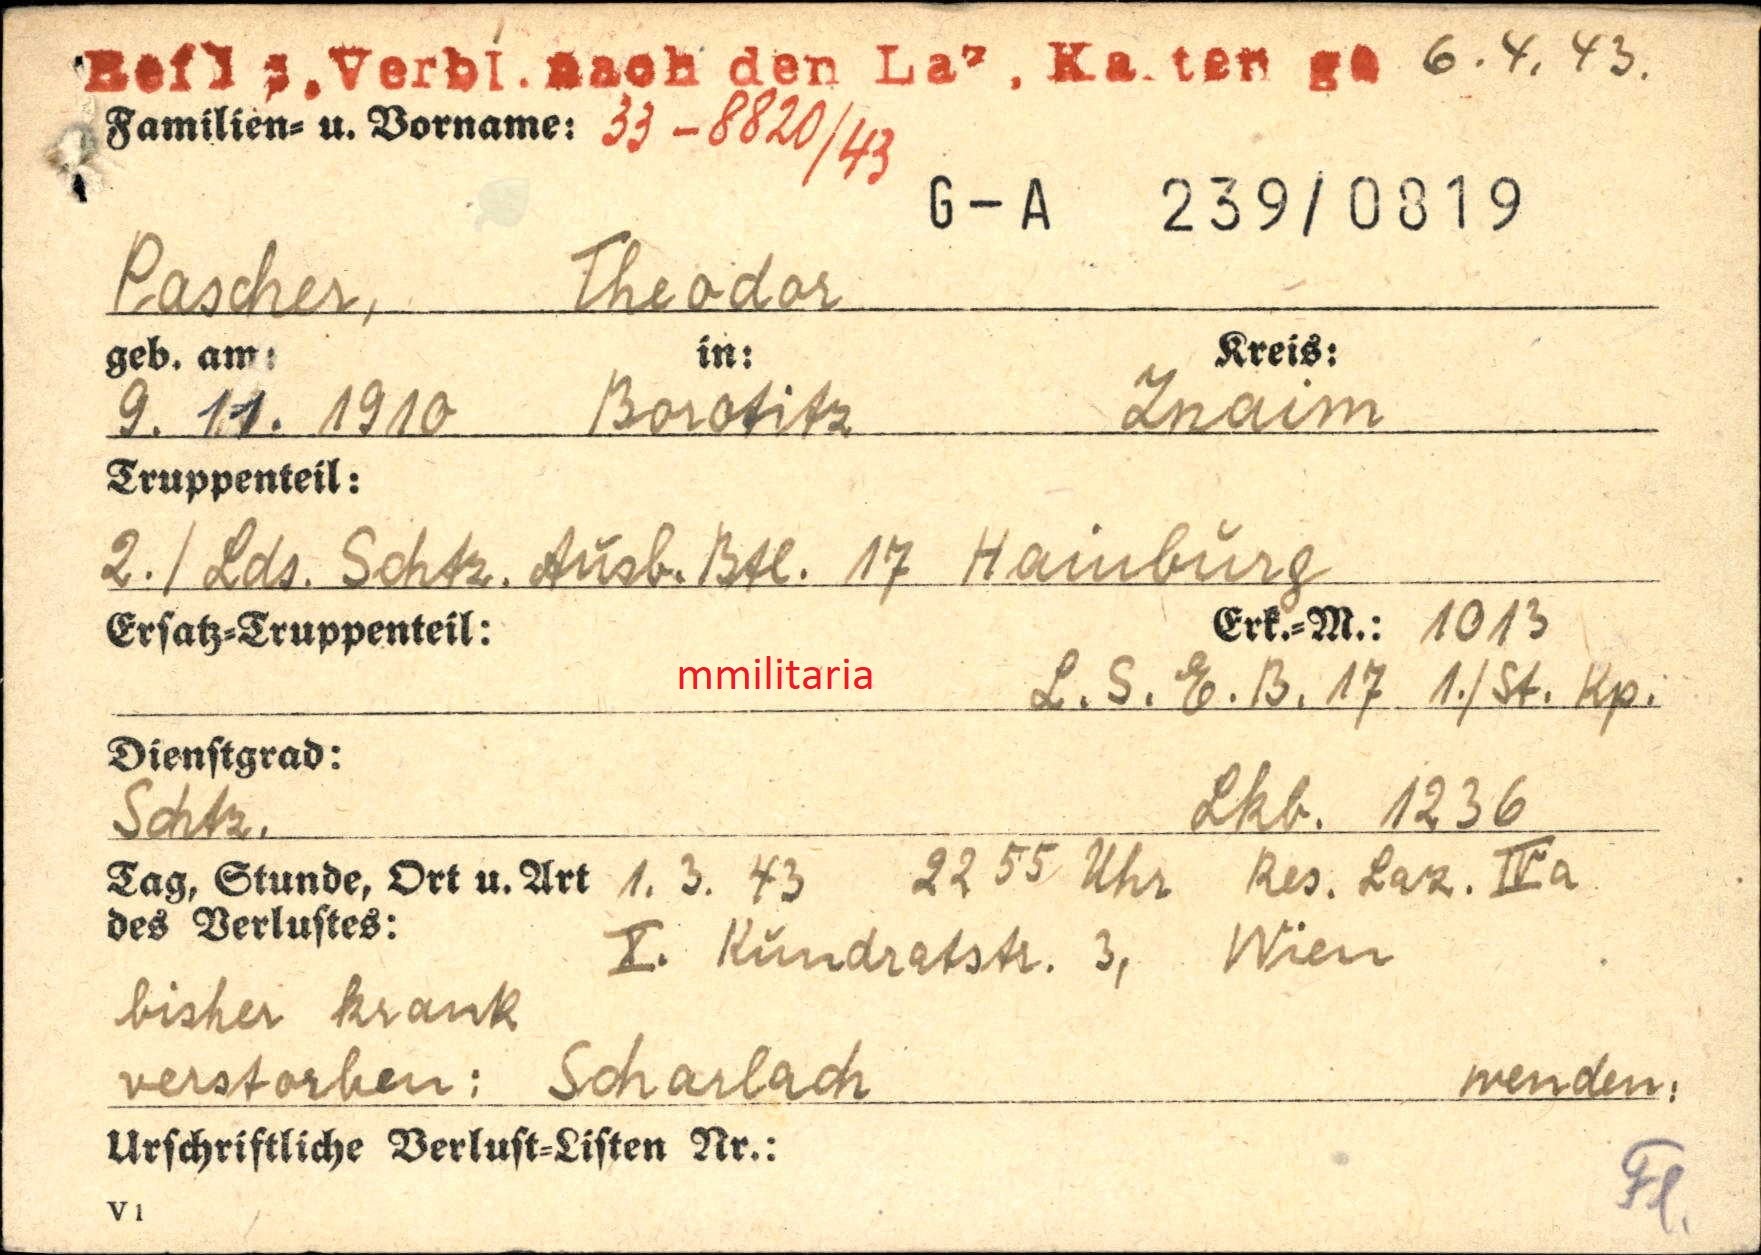 Verbl. nach den Laz. Karten ge 6.4.43.
Familien- u. Vorname: 33-8820/43
G-A 239/0819
Pascher, Theodor
geb. am: in: Kreis:
9. 11. 1910 Borotitz Znaim
Truppenteil:
2./Lds. Schtz. Ausb. Btl. 17 Hainburg
Ersatz-Truppenteil: Erk.-M.: 1013
mmilitaria
L.S.E.B. 17 1./St. Kp.
Dienstgrad:
Schtz. Lkb. 1236
Tag, Stunde, Ort u. Art 1. 3. 43 22 55 Uhr Res. Laz. IVa
des Verlustes: X. Kundratstr. 3, Wien
bisher krank
verstorben: Scharlach wenden:
Urschriftliche Verlust-Listen Nr.:
V 1
Fl.